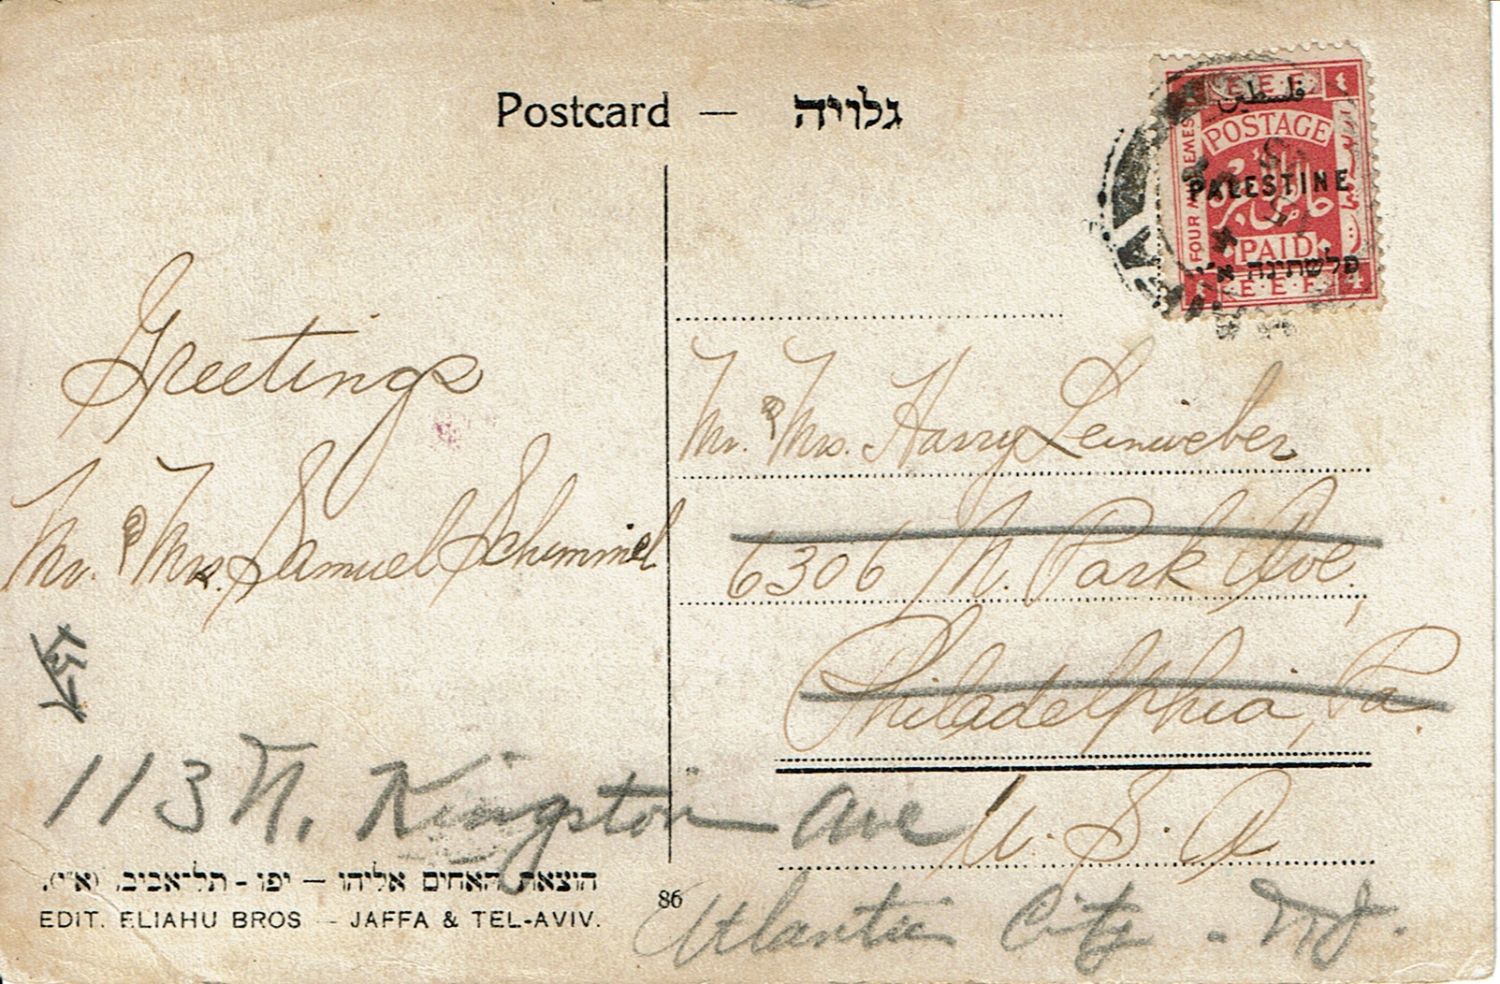 Postcard — גלויה
E.E.F.
فلسطين
POSTAGE
FOUR MILLIEMES
PALESTINE
PAID
פלשתינה א״י
E.E.F.
4
Greetings
Mr. & Mrs. Samuel Schimmel
Mr. & Mrs. Harry Leinweber
6306 N. Park Ave.,
Philadelphia, Pa.
U. S. A
113 N. Kingston Ave
Atlantic City - N.J.
הוצאת האחים אליהו — יפו - תל־אביב, (א״י).
EDIT. ELIAHU BROS - JAFFA & TEL-AVIV.
86